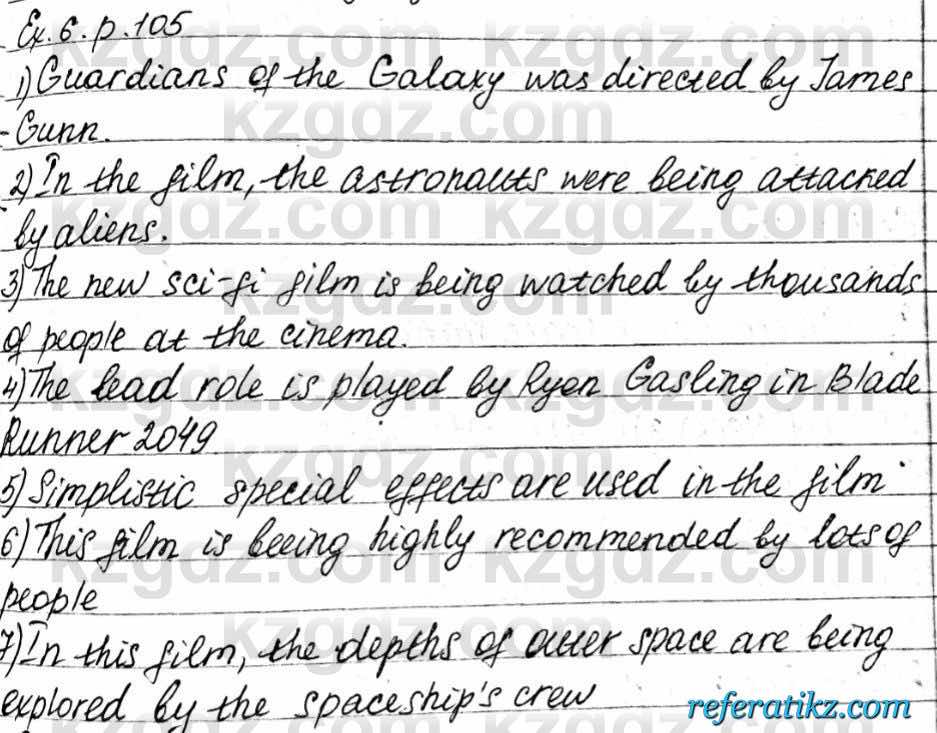 Ex. 6. p. 105
1) Guardians of the Galaxy was directed by James
- Gunn.
2) In the film, the astronauts were being attacked
by aliens.
3) The new sci-fi film is being watched by thousands
of people at the cinema.
4) The lead role is played by Ryen Gasling in Blade
Runner 2049
5) Simplistic special effects are used in the film.
6) This film is beeing highly recommended by lots of
people
7) In this film, the depths of outer space are being
explored by the spaceship's crew
kzgdz.com
referatikz.com